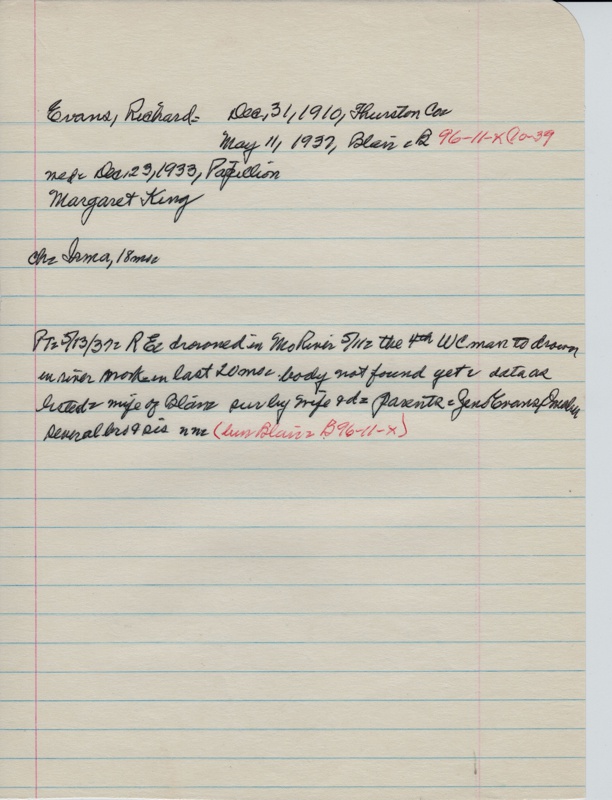 Evans, Richard= Dec, 31, 1910, Thurston Co=
May 11, 1937, Blair = B 96-11-X
med= Dec, 23, 1933, Papillion
Margaret King
ch= Irma, 18mo=
PT= 5/13/37= R E= drowned in Mo River 5/11= the 4th WC man to drown
in river work= in last 20 mo= body not found yet= data as
listed= wife of Blair= sur by wife & d= parents = Evans,
several bro & sis nm= (bur Blair= B96-11-X)